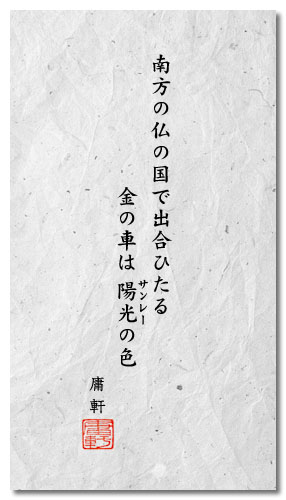 南方の仏の国で出合ひたる
金の車は陽光の色
サンレー
庸軒